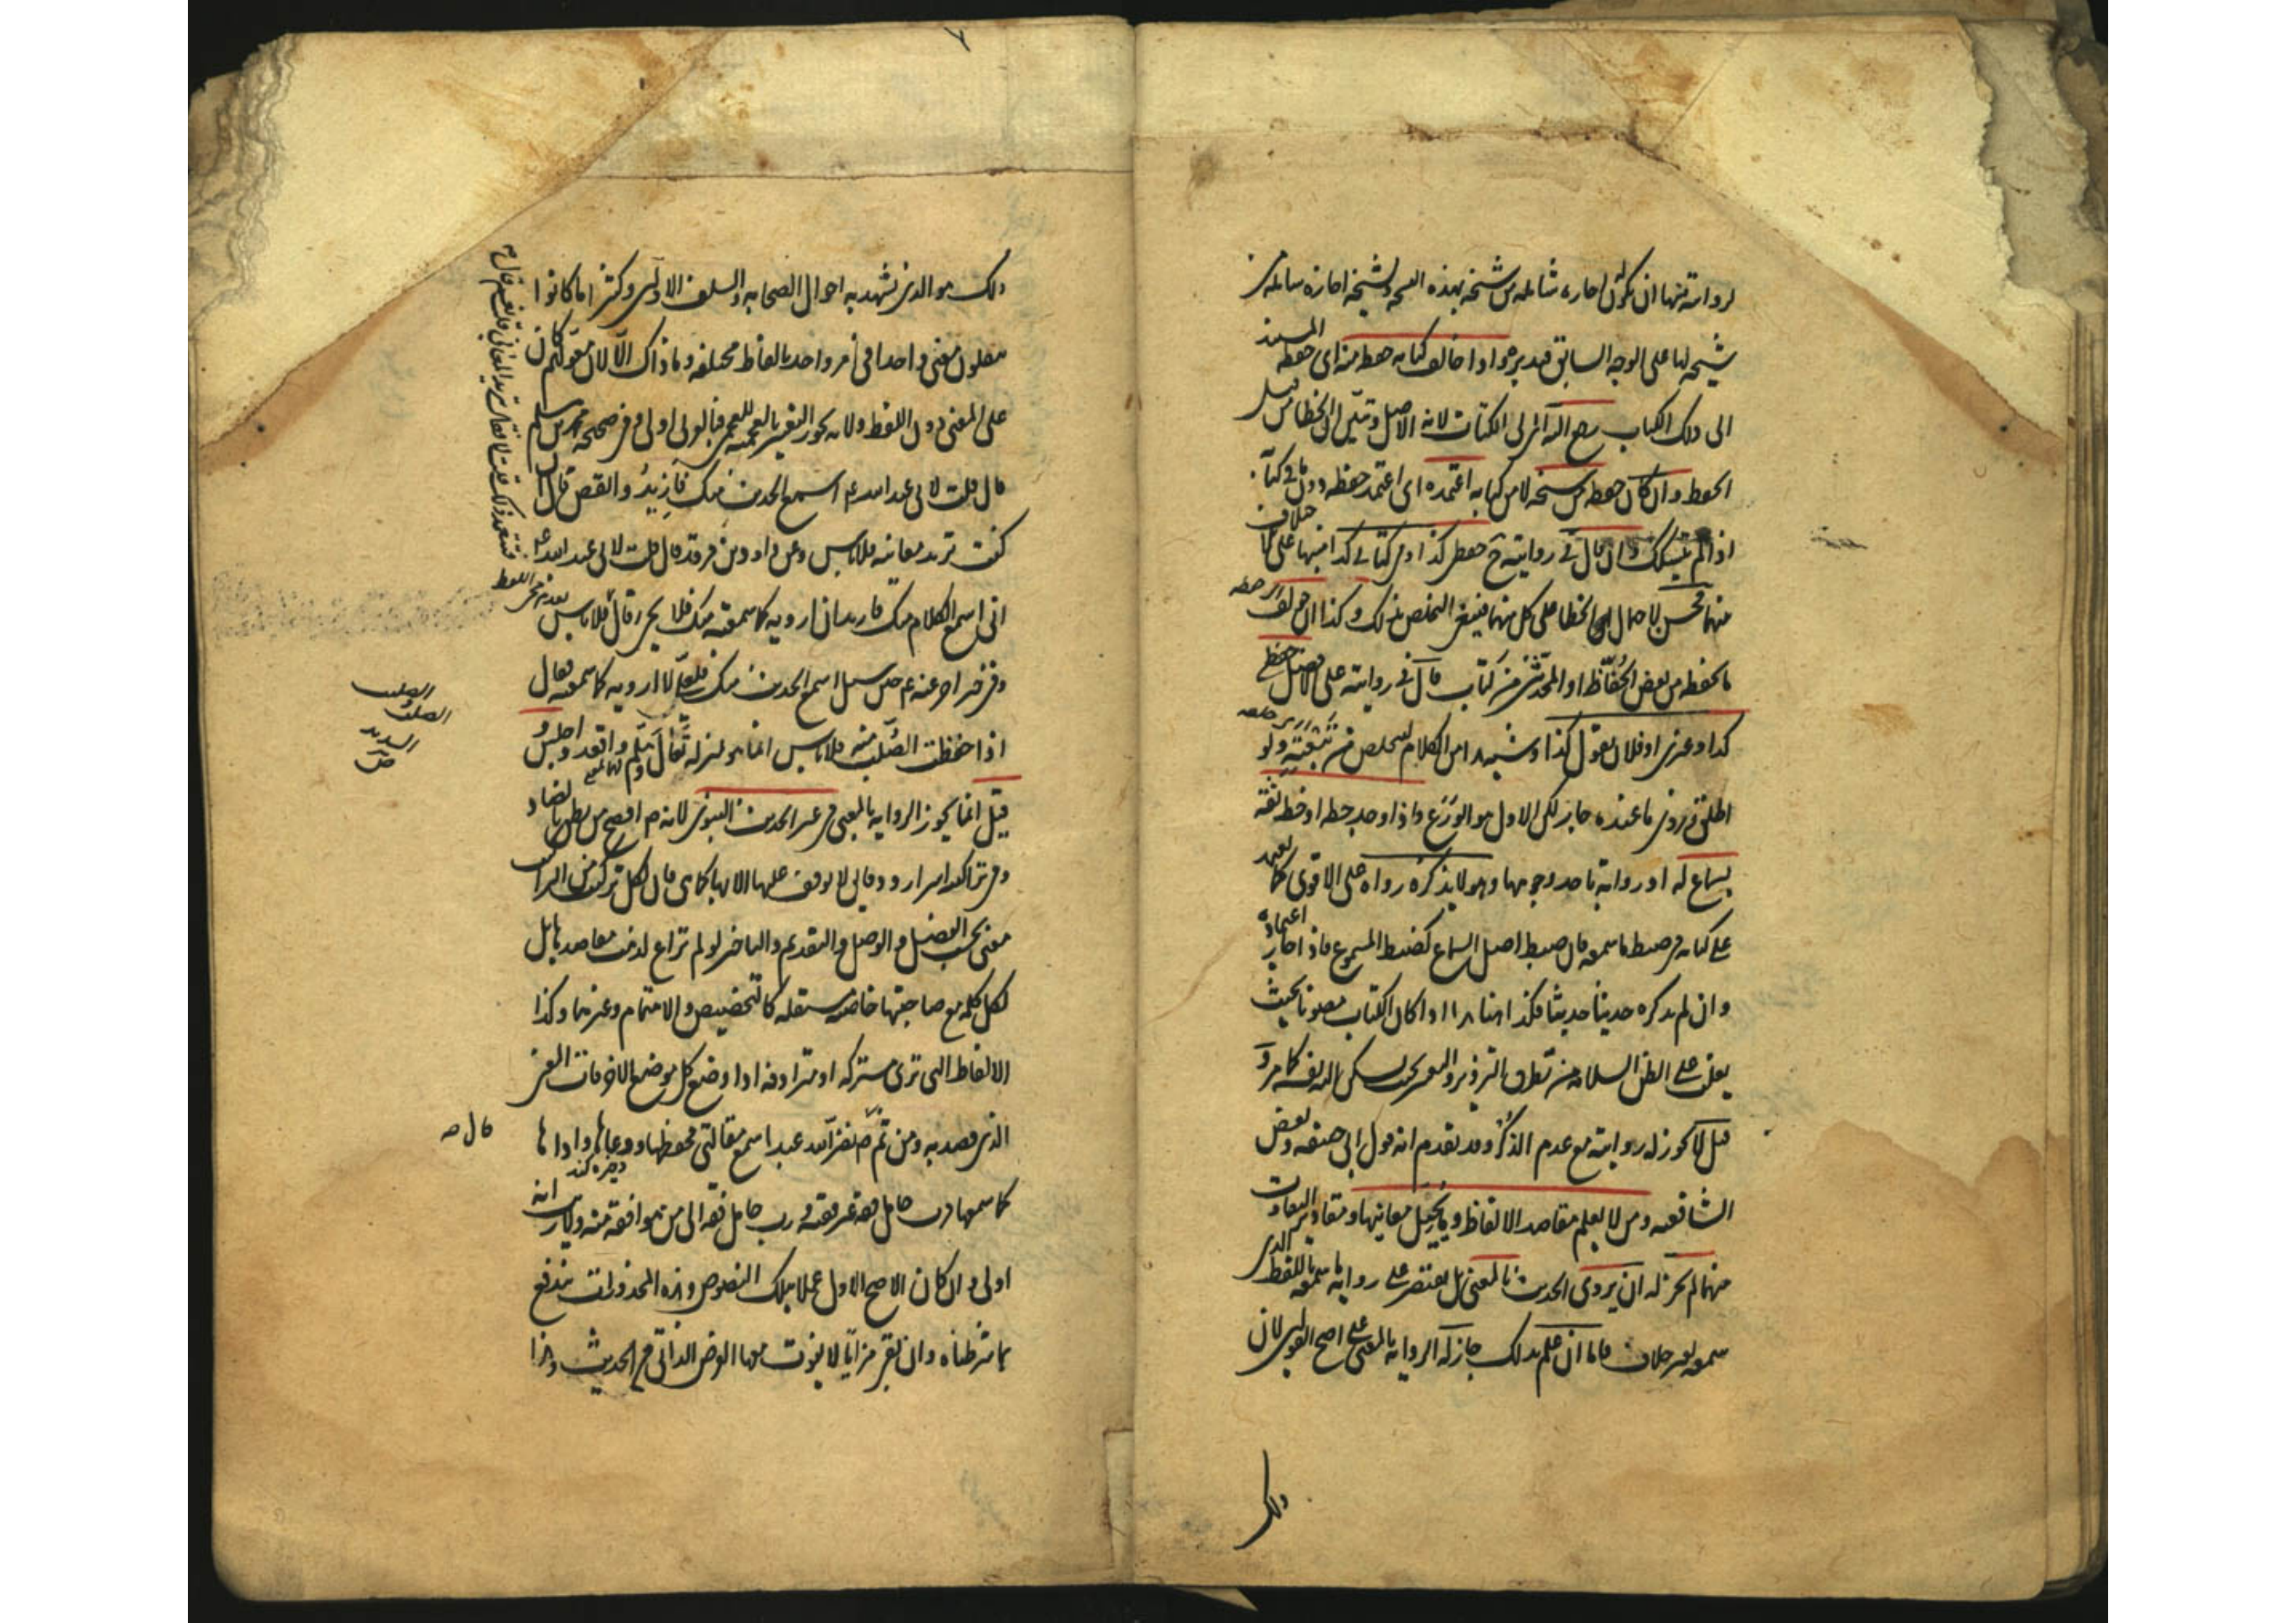 لروايته منها ان تكون له اجازة شاملة من شيخه بهذه النسخة ولشيخه اجازة شاملة من
شيخه لها على الوجه السابق قيد به هو واذا خالف كتابه حفظه منه اى حفظه المستند
الى ذلك الكتاب رجع اليه اى الى الكتاب لانه الاصل وتبين ان الخطا من قبل
الحفظ وان كان حفظه من شيخه لا من كتابه اعتمده اى اعتمد حفظه دون ما فى كتابه
اذا لم يتشكك وان قال فى روايته ح حفظى كذا وفى كتابى كذا منبها على خلاف
منهما فحسن لاحتمال الخطا على كل منهما فينبغى التخلص بذلك وكذا ان خولف
ما يحفظه من بعض الحفاظ او المحدثين من كتاب قال فى روايته على الاصل حفظى
كذا وغيرى او فلان يقول كذا وشبه هذا من الكلام ليتخلص من تبعته ولو
اطلق وروى ما عنده جاز لكن الاول هو الورع واذا وجد خطه او خط ثقة
بسماع له او رواية باحد وجوهها وهو لا يذكره رواه على الاقوى كما يعتمد
على كتابه فى ضبط ما سمعه فان ضبط اصل السماع كضبط المسموع فاذا جاز اعتماده
وان لم يذكره حديثا حديثا فكذا هنا هذا اذا كان الكتاب مصونا بحيث
يغلب على الظن السلامة من تطرق التزوير والتغيير بحيث تسكن اليه نفسه كما مر و
قيل لا يجوز له روايته مع عدم الذكر وقد تقدم انه قول ابى حنيفة وبعض
الشافعية ومن لا يعلم مقاصد الالفاظ وما يحيل معانيها ومقادير التفاوت
منها لم يجز له ان يروى الحديث بالمعنى بل يقتصر على رواية ما سمعه باللفظ الذى
سمعه بغير خلاف فاما ان علم بذلك جاز له الرواية بالمعنى على اصح القولين لان
ذلك
ذلك هو الذى تشهد به احوال الصحابة والسلف الاولين وكثيرا ما كانوا
ينقلون معنى واحدا فى امر واحد بالفاظ مختلفة وما ذاك الا لان معولهم كان
على المعنى دون اللفظ ولانه يجوز التعبير بالعجمية للعجمى فبالعربى اولى وفى صحيحة محمد بن مسلم
قال قلت لابى عبد الله ع اسمع الحديث منك فازيد وانقص قال ان
كنت تريد معانيه فلا باس وعن داود بن فرقد قال قلت لابى عبد الله ع
انى اسمع الكلام منك فاريد ان ارويه كما سمعته منك فلا يجئ قال فلا باس
وفى خبر اخر عنه ع حين سئل اسمع الحديث منك فلعلى لا ارويه كما سمعته فقال
اذا حفظت الصلب منه فلا باس انما هو بمنزلة تعال وهلم واقعد واجلس و
قيل انما يجوز الرواية بالمعنى فى غير الحديث النبوى لانه ص افصح من نطق بالضاد و
فى تراكيبه اسرار ودقايق لا يوقف عليها الا بها كما هى فان لكل تركيب من التراكيب
معنى بحسب الفصل والوصل والتقديم والتاخير لو لم تراع لذهبت مقاصدها بل
لكل كلمة مع صاحبتها خاصية مستقلة كالتخصيص والاهتمام وغيرهما وكذا
الالفاظ التى ترى مشتركة او مترادفة اذا وضع كل موضع الاخر فات المعنى
الذى قصد به ومن ثم قال ص نضر الله عبدا سمع مقالتى فحفظها ووعاها واداها
كما سمعها فرب حامل فقه غير فقيه ورب حامل فقه الى من هو افقه منه ولا ريب انه
اولى وان كان الاصح الاول عملا بتلك النصوص وهذه المحذورات تندفع
بما شرطناه وان بقى مزايا لا يفوت معها الغرض الذاتى من الحديث وهذا
قال ص